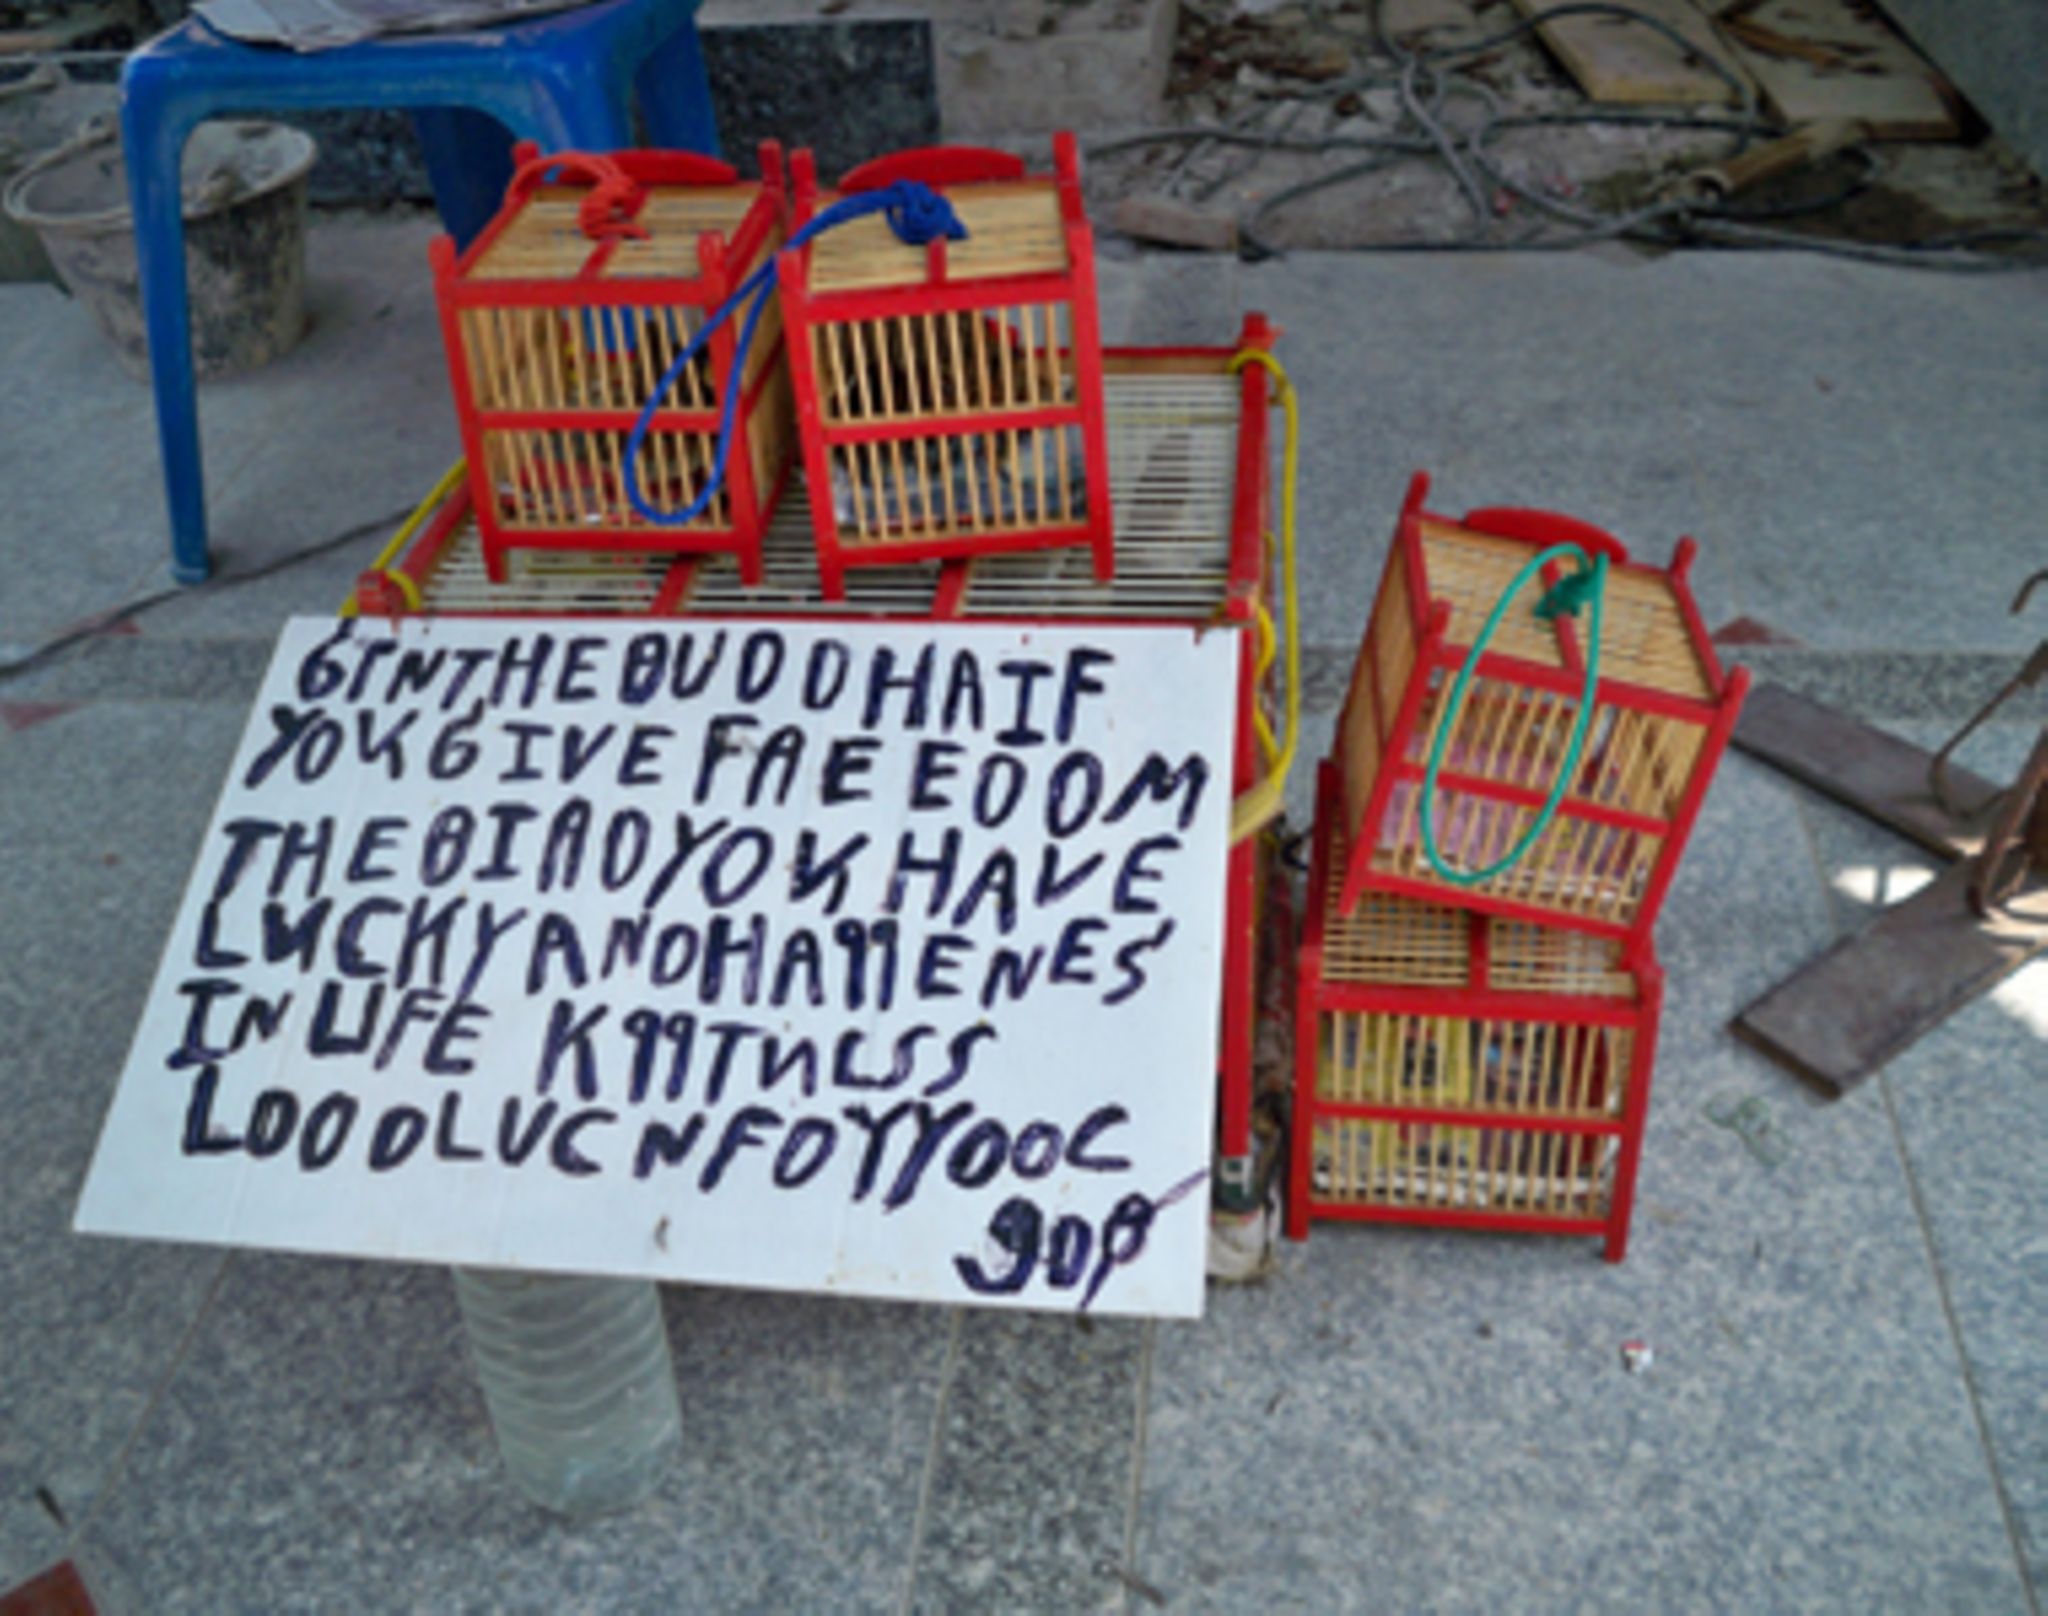 GINTHEBUDDHAIF
YOUGIVE FAEEDOM
THEBIADYOUHAVE
LUCKYANDHAPPENES
IN LIFE KPPTNLSS
LOODLUCNFOYYOOC
90฿